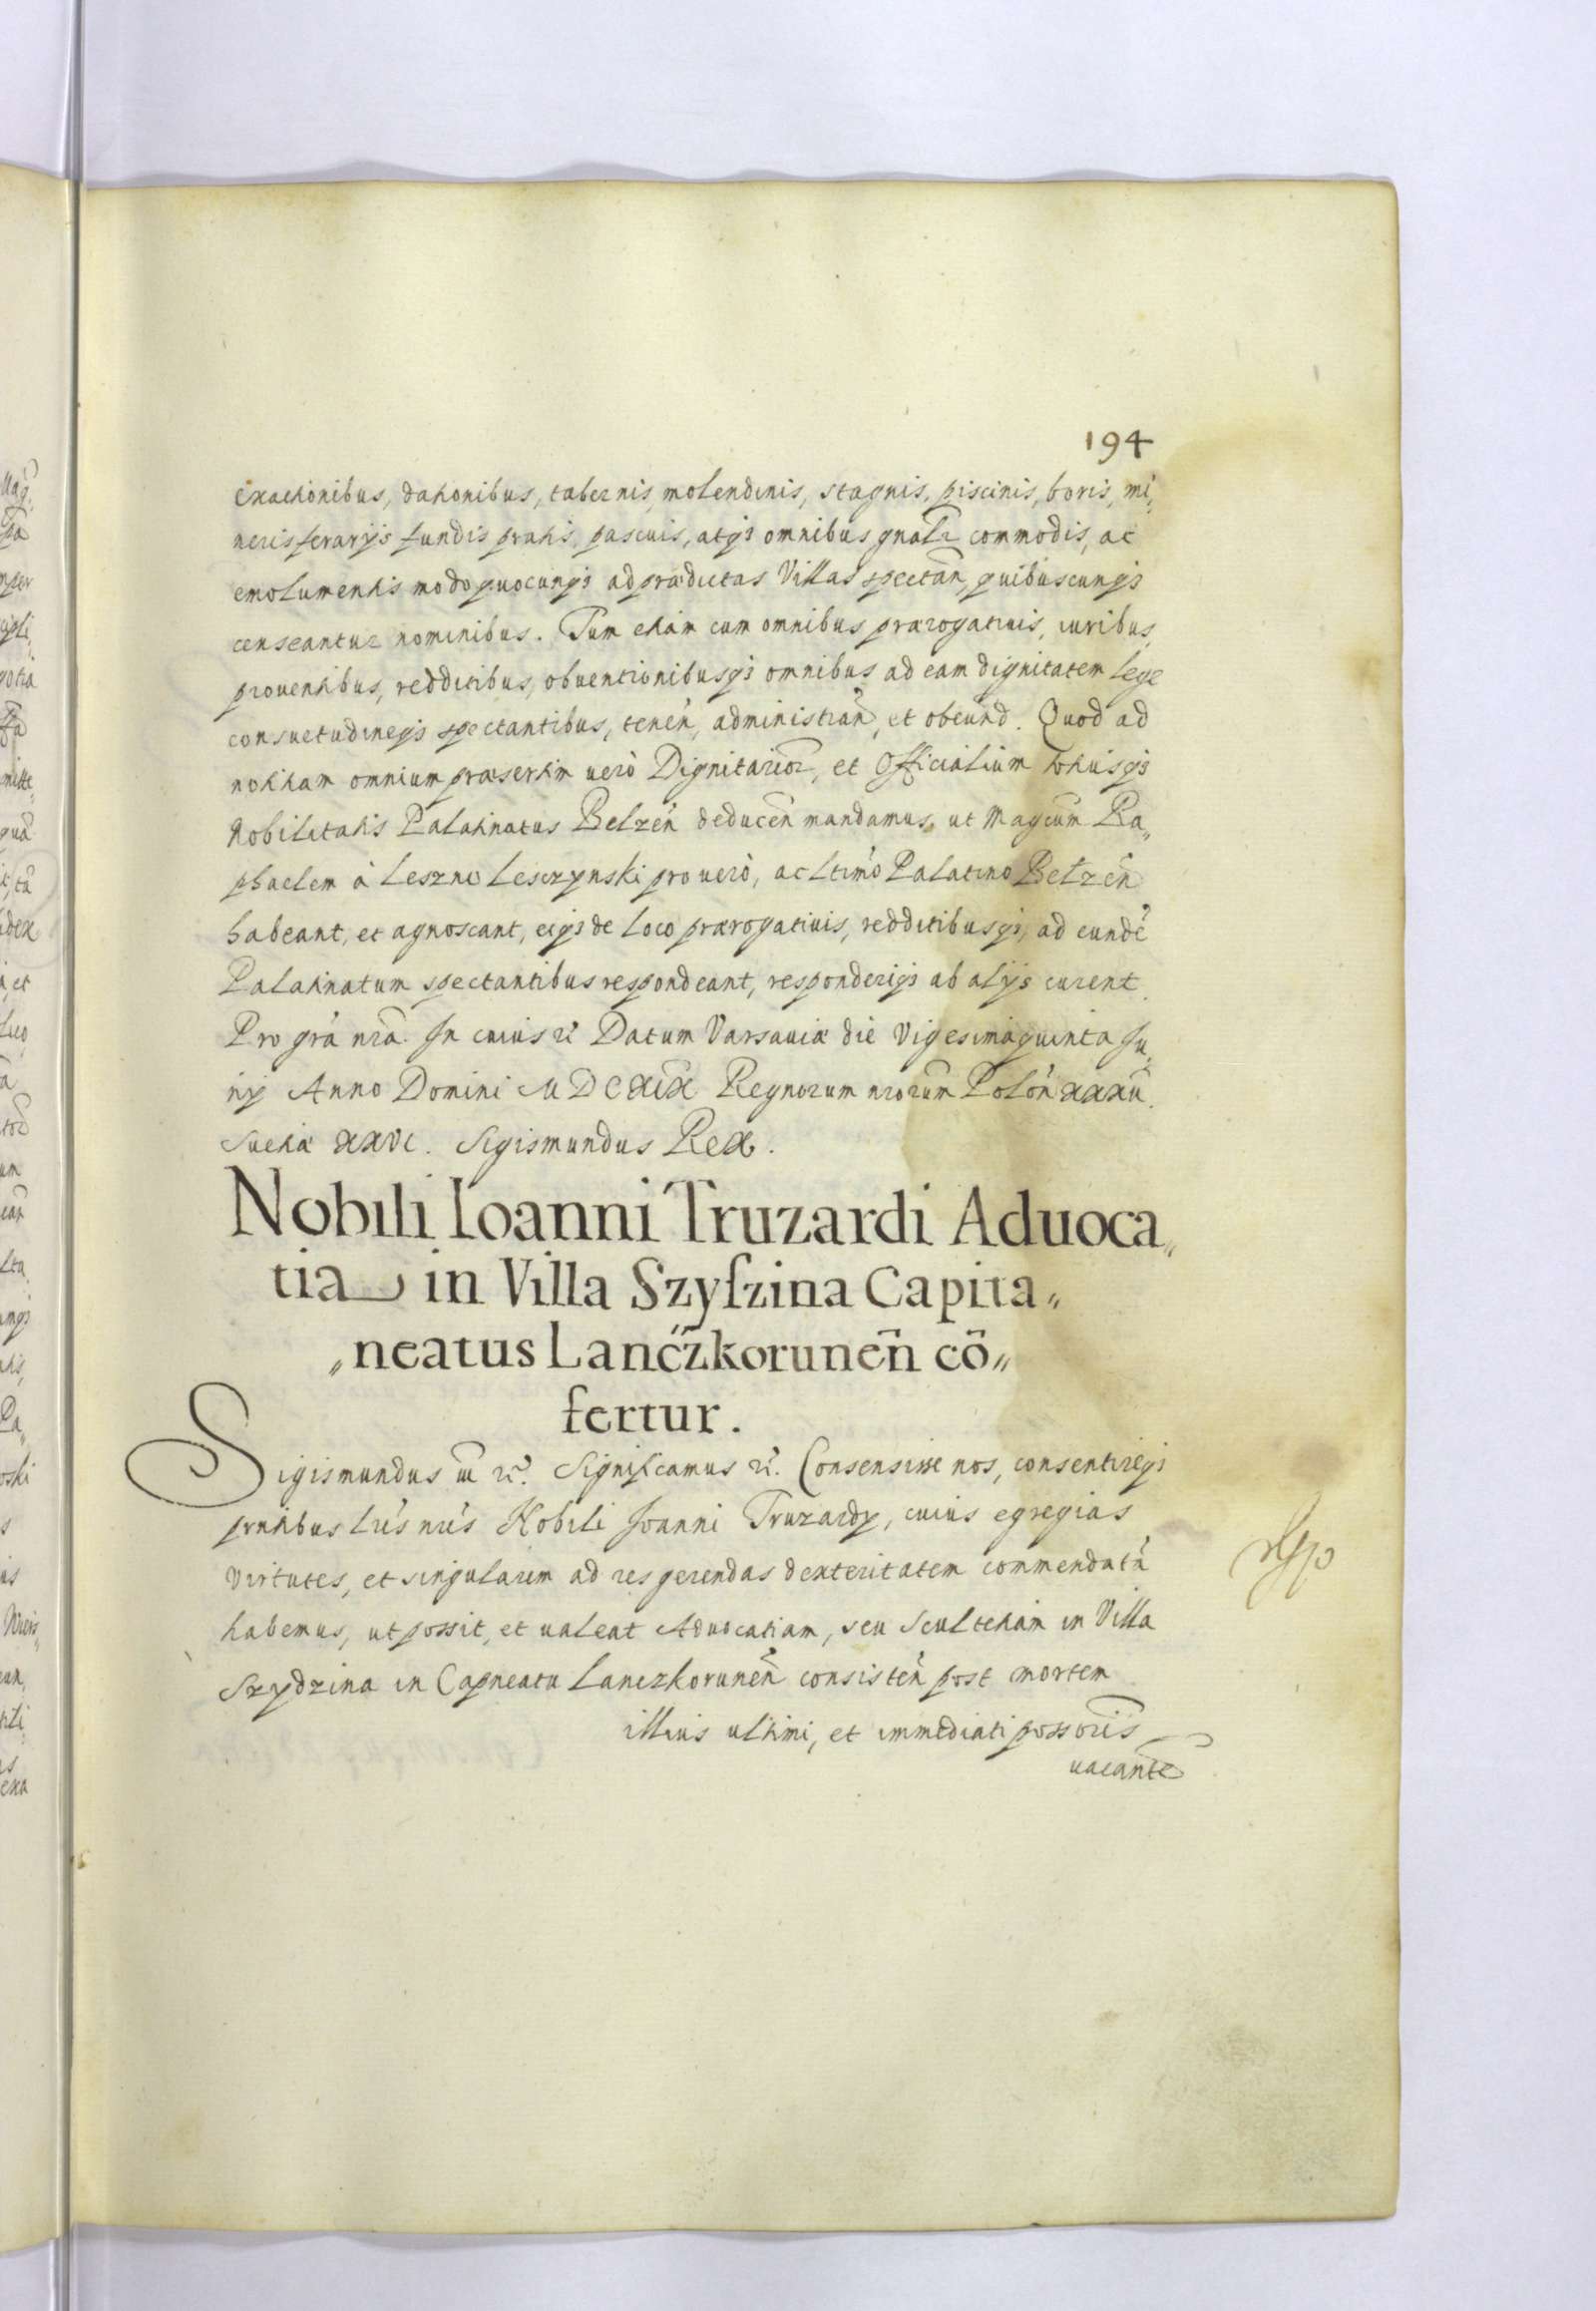 194
exactionibus, dationibus, tabernis, molendinis, stagnis, piscinis, boris, mi,,
neris ferarijs fundis pratis, pascuis, atq3 omnibus gnałr commodis, ac
emolumentis modo quocunq3 ad prædictas Villas spectan̄, quibuscunq3
censeantur nominibus. Tum etiàm cum omnibus prærogatiuis, iuribus,
prouentibus, redditibus, obuentionibusq3 omnibus ad eam dignitatem lege
consuetudineq3 spectantibus, tenen̄, administran̄, et obeund. Quod ad
notitiam omnium præsertim uerò Dignitarior̄, et Officialium totiusq3
Nobilitatis Palatinatus Belzen̄ deducen̄ mandamus, ut Magcūm Ra,,
phaelem à Leszno Lesczynski pro uerò, ac ltimo Palatino Belzen̄
habeant, et agnoscant, eiq3 de loco prærogatiuis, redditibusq3, ad eundē
Palatinatum spectantibus respondeant, responderiq3 ab alijs curent
Pro grā nrā. In cuius rē Datum Varsauiæ die Vigesimaquinta Ju,,
nij Anno Domini MDCXIX Regnorum nrorum Polon̄ XXXII.
Suetiæ XXVI. Sigismundus Rex.
Nobili Ioanni Truzardi Aduoca,,
tia in Villa Szyſzina Capita,,
,,neatus Lanc̄zkorunen̄ cō,,
fertur.
Sigismundus III rē. Significamus rē. Consensisse nos, consentireq3
prntibus lrīs nrīs Nobili Joanni Truzardy, cuius egregias
Virtutes, et singularem ad res gerendas dexteritatem commendatā
habemus, ut possit, et ualeat Aduocatiam, seu Scultetiàm in Villa
Szydzina in Capneatu Lanczkorunen̄ consisten̄ post mortem
illius ultimi, et immediati possoris
uacantē